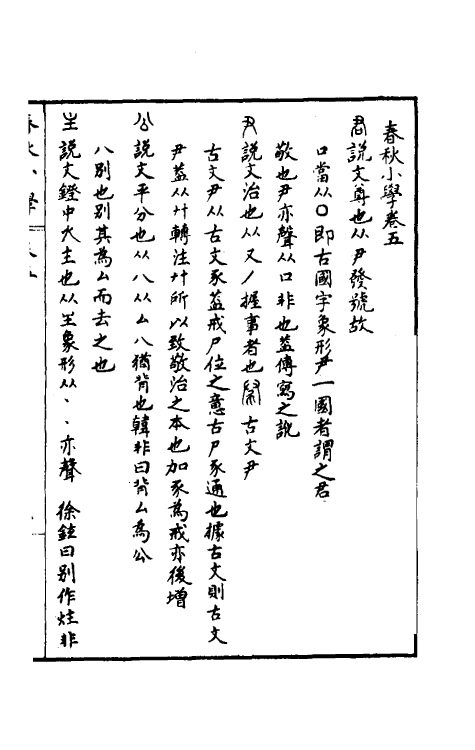 春秋小學卷五
君說文尊也从尹發號故
口當从〇即古國字象形尹一國者謂之君
敬也尹亦聲从口非也蓋傳寫之訛
尹說文治也从又丿握事者也 古文尹
古文尹从古文豕蓋戒尸位之意古尸豕通也據古文則古文
尹蓋从廾轉注廾所以致敬治之本也加豕為戒亦後增
公說文平分也从八从厶八猶背也韓非曰背厶為公
八別也別其為厶而去之也
主說文鐙中火主也从𡈼象形从丶丶亦聲 徐鉉曰別作炷非
春秋小學 卷五